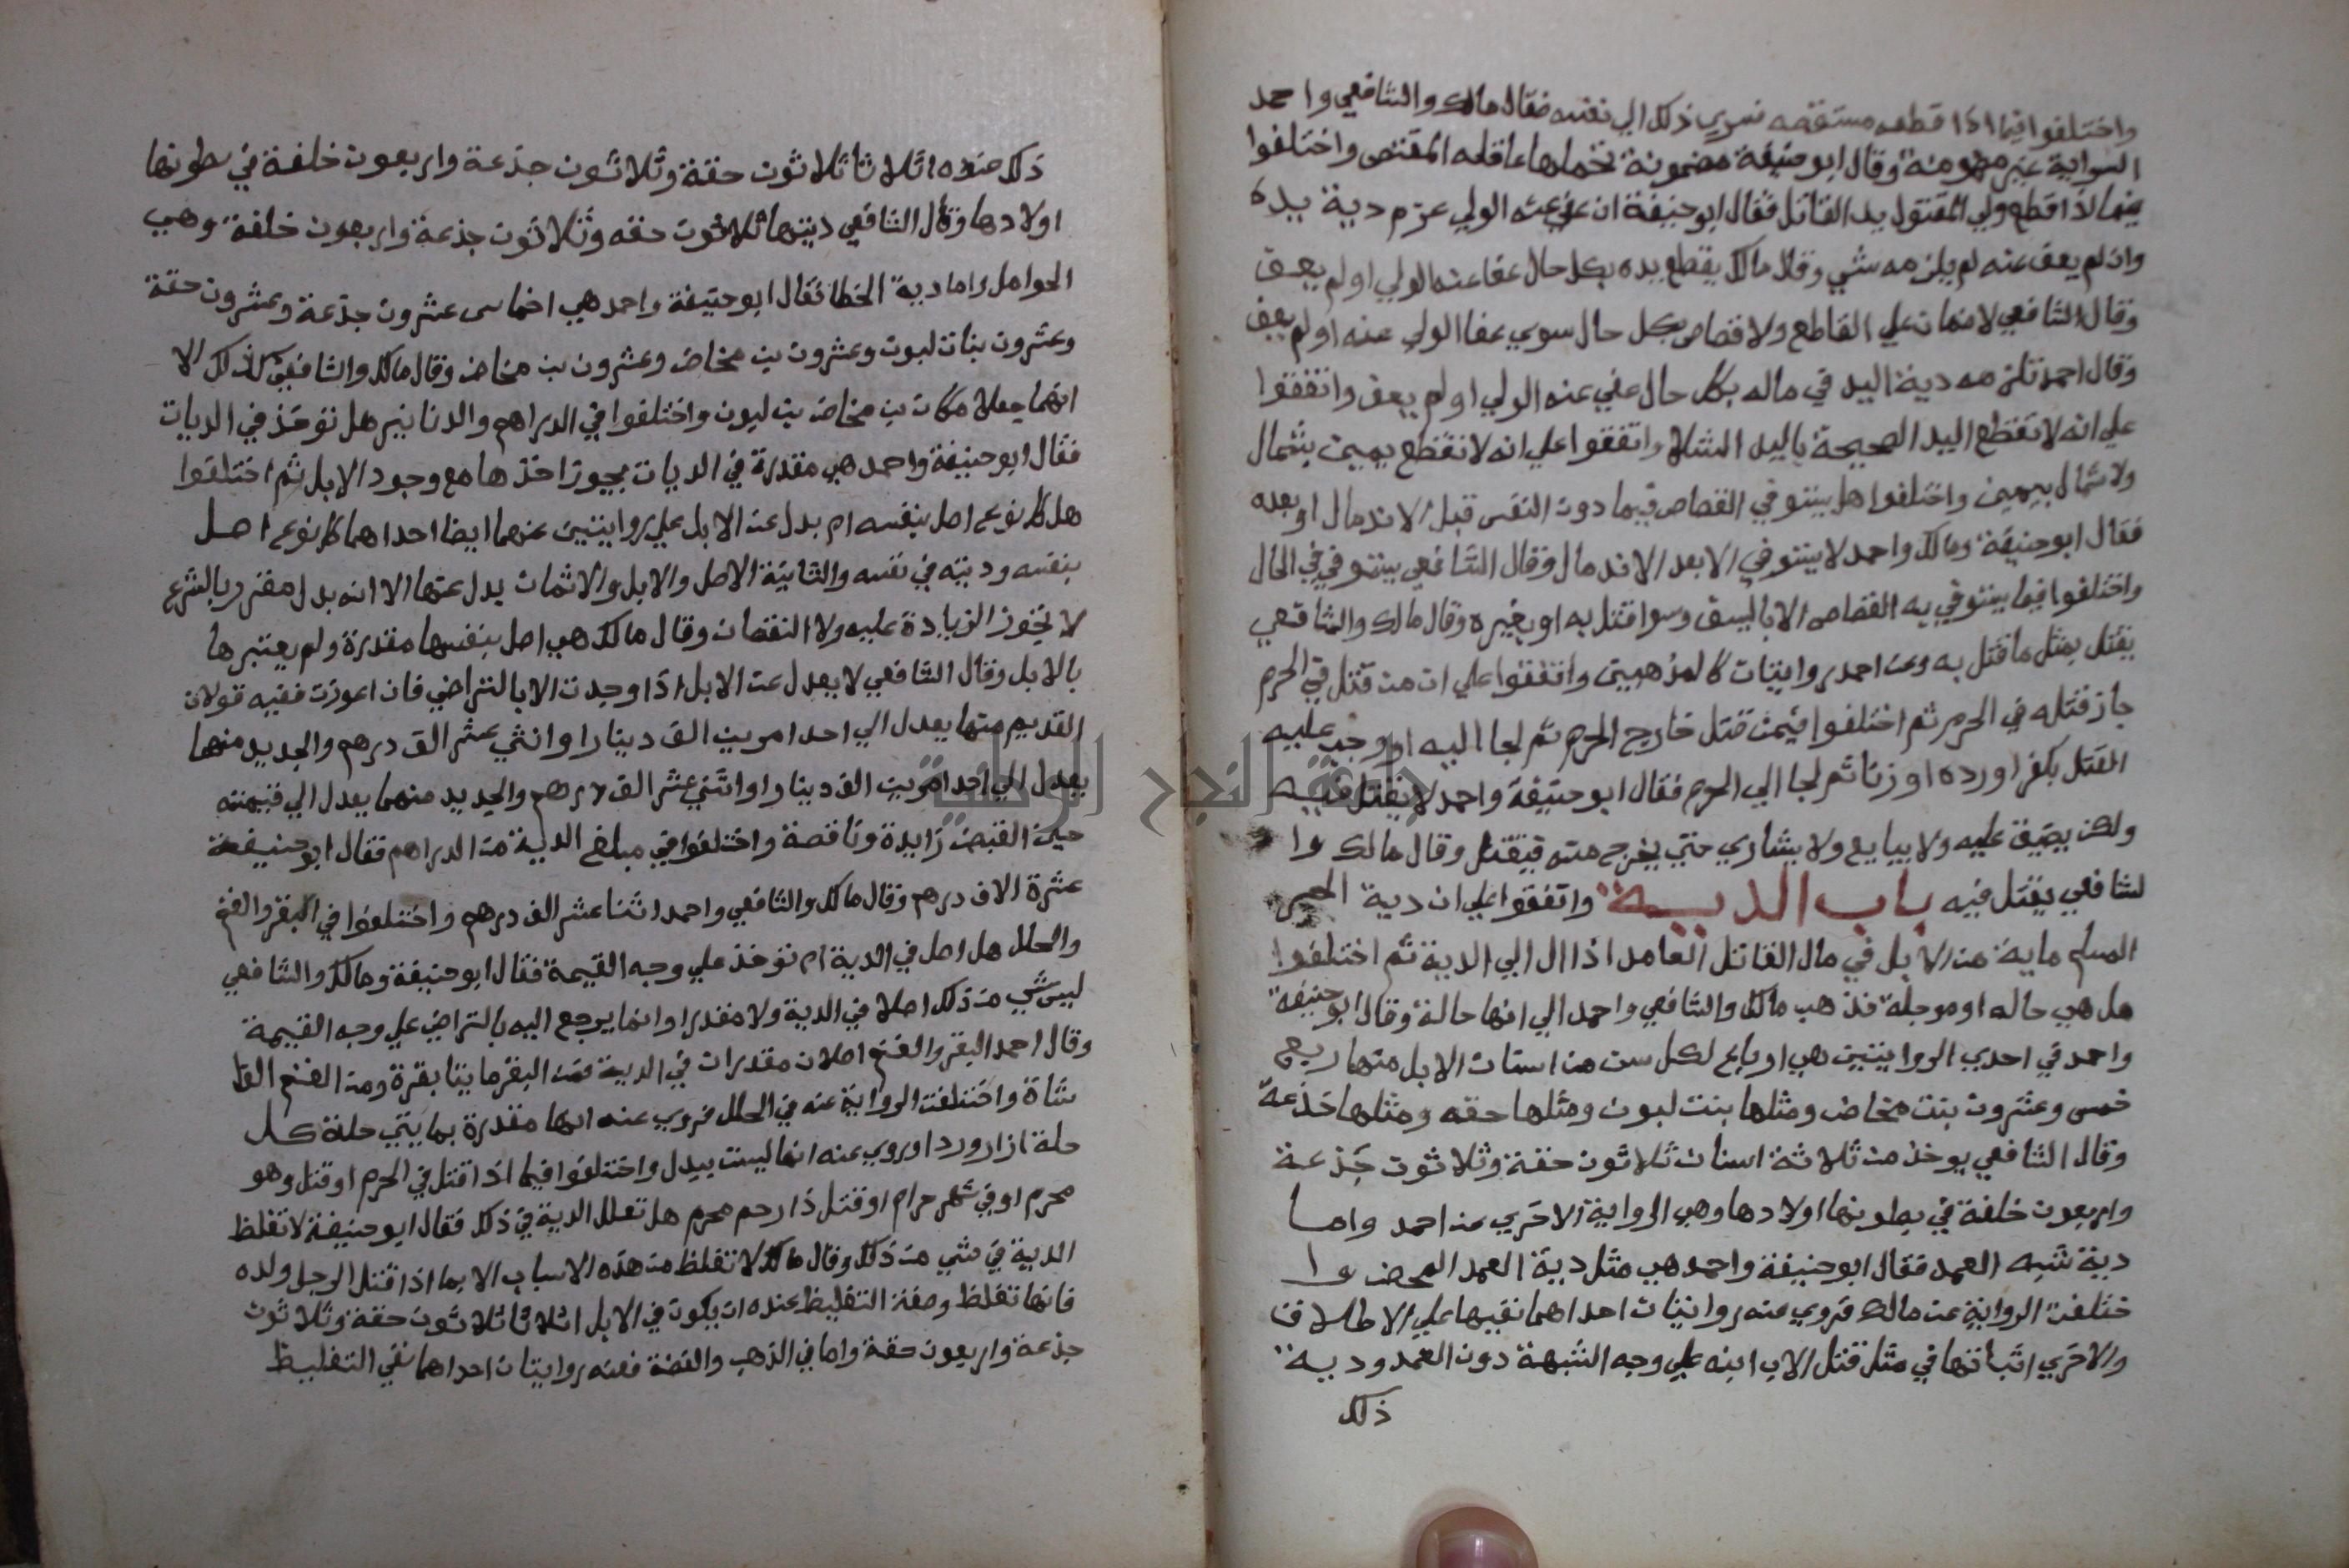 واختلفوا فيما اذا قطعه مستقصه فسري ذلك الي نفسه فقال مالك والشافعي واحمد
السراية غير مضمونة وقال ابو حنيفة مضمونة تحملها عاقلة المقتص واختلفوا
فيما اذا قطع ولي المقتول يد القاتل فقال ابو حنيفة ان عفي عنه الولي غرم دية يده
وان لم يعف عنه لم يلزمه شي وقال مالك يقطع يده بكل حال عفا عنه الولي او لم يعف
وقال الشافعي لا ضمان علي القاطع ولا قصاص بكل حال سوي عفا الولي عنه او لم يعف
وقال احمد تلزمه دية اليد في ماله بكل حال عفي عنه الولي او لم يعف واتفقوا
علي انه لا تقطع اليد الصحيحة باليد الشلا واتفقوا علي انه لا تقطع يمين بشمال
ولا شمال بيمين واختلفوا هل يستوفي القصاص فيما دون النفس قبل الاندمال او بعده
فقال ابو حنيفة ومالك واحمد لا يستوفي الا بعد الاندمال وقال الشافعي يستوفي في الحال
واختلفوا فيما يستوفي به القصاص الا بالسيف وسوا قتل به او بغيره وقال مالك والشافعي
يقتل بمثل ما قتل به وعن احمد روايتان كالمذهبين واتفقوا علي ان من قتل في الحرم
جاز قتله في الحرم ثم اختلفوا فيمن قتل خارج الحرم ثم لجا اليه او وجب عليه
القتل بكفر او رده او زنا ثم لجا الي الحرم فقال ابو حنيفة واحمد لا يقتل فيه
ولكن يضيق عليه ولا يبايع ولا يشاري حتي يخرج منه فيقتل وقال مالك وا
لشافعي يقتل فيه باب الدية واتفقوا علي ان دية الحر
المسلم ماية من الابل في مال القاتل العامد اذا ال الي الدية ثم اختلفوا
هل هي حاله او موجلة فذهب مالك والشافعي واحمد الي انها حالة وقال ابو حنيفة
واحمد في احدي الروايتين هي ارباع لكل سن من اسنان الابل منها ربع
خمس وعشرون بنت مخاض ومثلها بنت لبون ومثلها حقه ومثلها جذعة
وقال الشافعي يوخذ من ثلاثة اسنان ثلاثون حقة وثلاثون جذعة
واربعون خلفة في بطونها اولادها وهي الرواية الاخري عن احمد واما
دية شبه العمد فقال ابو حنيفة واحمد هي مثل دية العمد المحض وا
ختلفت الرواية عن مالك فروي عنه روايتان احداهما نفيها علي الاطلاق
والاخري اثباتها في مثل قتل الاب ابنه علي وجه الشبهة دون العمد ودية
ذلك
ذلك عنده اثلاثا ثلاثون حقة وثلاثون جذعة واربعون خلفة في بطونها
اولادها وقال الشافعي ديتها ثلاثون حقه وثلاثون جذعة واربعون خلفة وهي
الحوامل واما دية الخطا فقال ابو حنيفة واحمد هي اخماس عشرون جذعة وعشرون حقة
وعشرون بنات لبون وعشرون بن مخاض وعشرون بنت مخاض وقال مالك والشافعي كذلك الا
انهما جعلا مكان بن مخاض بن لبون واختلفوا في الدراهم والدنانير هل توخذ في الديات
فقال ابو حنيفة واحمد هي مقدرة في الديات يجوز اخذها مع وجود الابل ثم اختلفوا
هل كل نوع اصل بنفسه ام بدل عن الابل علي روايتين عنهما ايضا احداهما كل نوع اصل
بنفسه وديته في نفسه والثانية الاصل والابل والاثمان بدل عنها الا انه بدل مقرر بالشرع
لا يجوز الزيادة عليه ولا النقصان وقال مالك هي اصل بنفسها مقدرة ولم يعتبرها
بالابل وقال الشافعي لا يعدل عن الابل اذا وجدت الا بالتراضي فان اعوزت ففيه قولان
القديم منها يعدل الي احد امرين الف دينار او اثني عشر الف درهم والجديد منهما
يعدل الي احد امرين الف دينار او اثني عشر الف درهم والجديد منهما يعدل الي قيمته
حين القبض زايدة وناقصة واختلفوا في مبلغ الدية من الدراهم فقال ابو حنيفة
عشرة الاف درهم وقال مالك والشافعي واحمد اثنا عشر الف درهم واختلفوا في البقر والغنم
والحلل هل اصل في الدية ام توخذ علي وجه القيمة فقال ابو حنيفة ومالك والشافعي
ليس شي من ذلك اصلا في الدية ولا مقدرا وانما يرجع اليه بالتراضي علي وجه القيمة
وقال احمد البقر والغنم اصلان مقدرات في الدية فمن البقر مايتا بقرة ومن الغنم الفا
شاة واختلفت الرواية عنه في الحلل فروي عنه انها مقدرة بمايتي حلة كل
حلة ازار وردا وروي عنه انها ليست ببدل واختلفوا فيما اذا قتل في الحرم او قتل وهو
محرم او في شهر حرام او قتل ذا رحم محرم هل تغلظ الدية في ذلك فقال ابو حنيفة لا تغلظ
الدية في شي من ذلك وقال مالك لا تغلظ من هذه الاسباب الا بما اذا قتل الرجل ولده
فانها تغلظ وصفة التغليظ عنده ان يكون في الابل اثلاثا ثلاثون حقة وثلاثون
جذعة واربعون حقة واما في الذهب والفضة فعنه روايتان احداهما نفي التغليظ
جامعة النجاح الوطنية